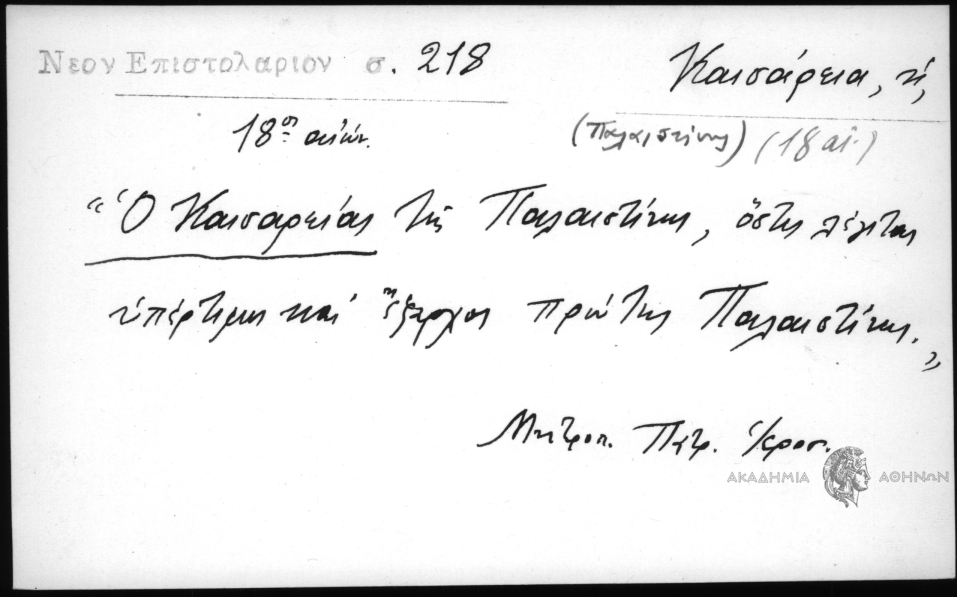 Νεον Επιστολαριον σ. 218
Καισάρεια, ἡ
18ος αἰών.
(Παλαιστίνης) (18 αἰ.)
"Ὁ Καισαρείας τῆς Παλαιστίνης, ὅστις λέγεται
ὑπέρτιμος καὶ ἔξαρχος πρώτης Παλαιστίνης."
Μητροπ. Πατρ. Ἱεροσ.
ΑΚΑΔΗΜΙΑ ΑΘΗΝΩΝ